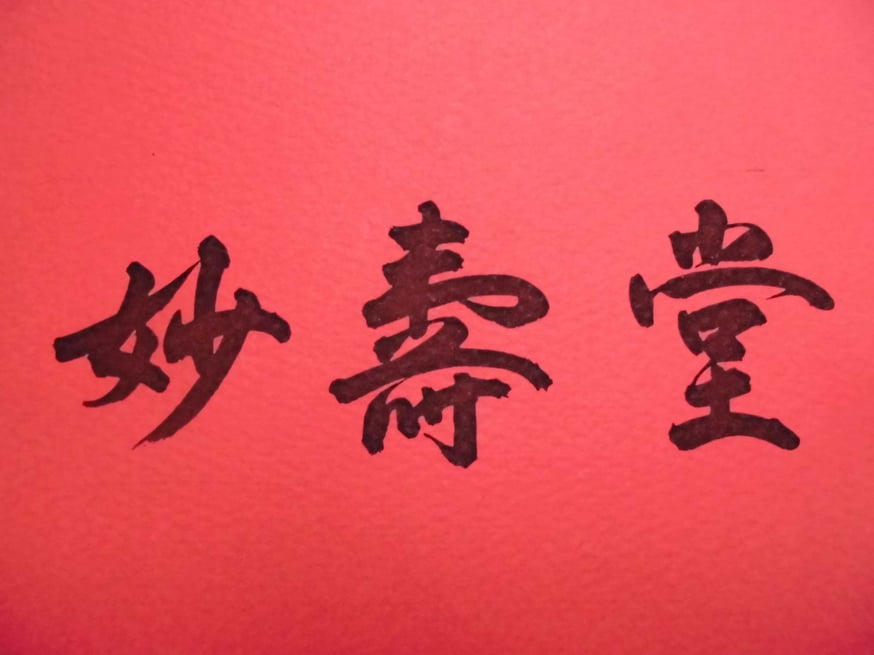 妙壽堂